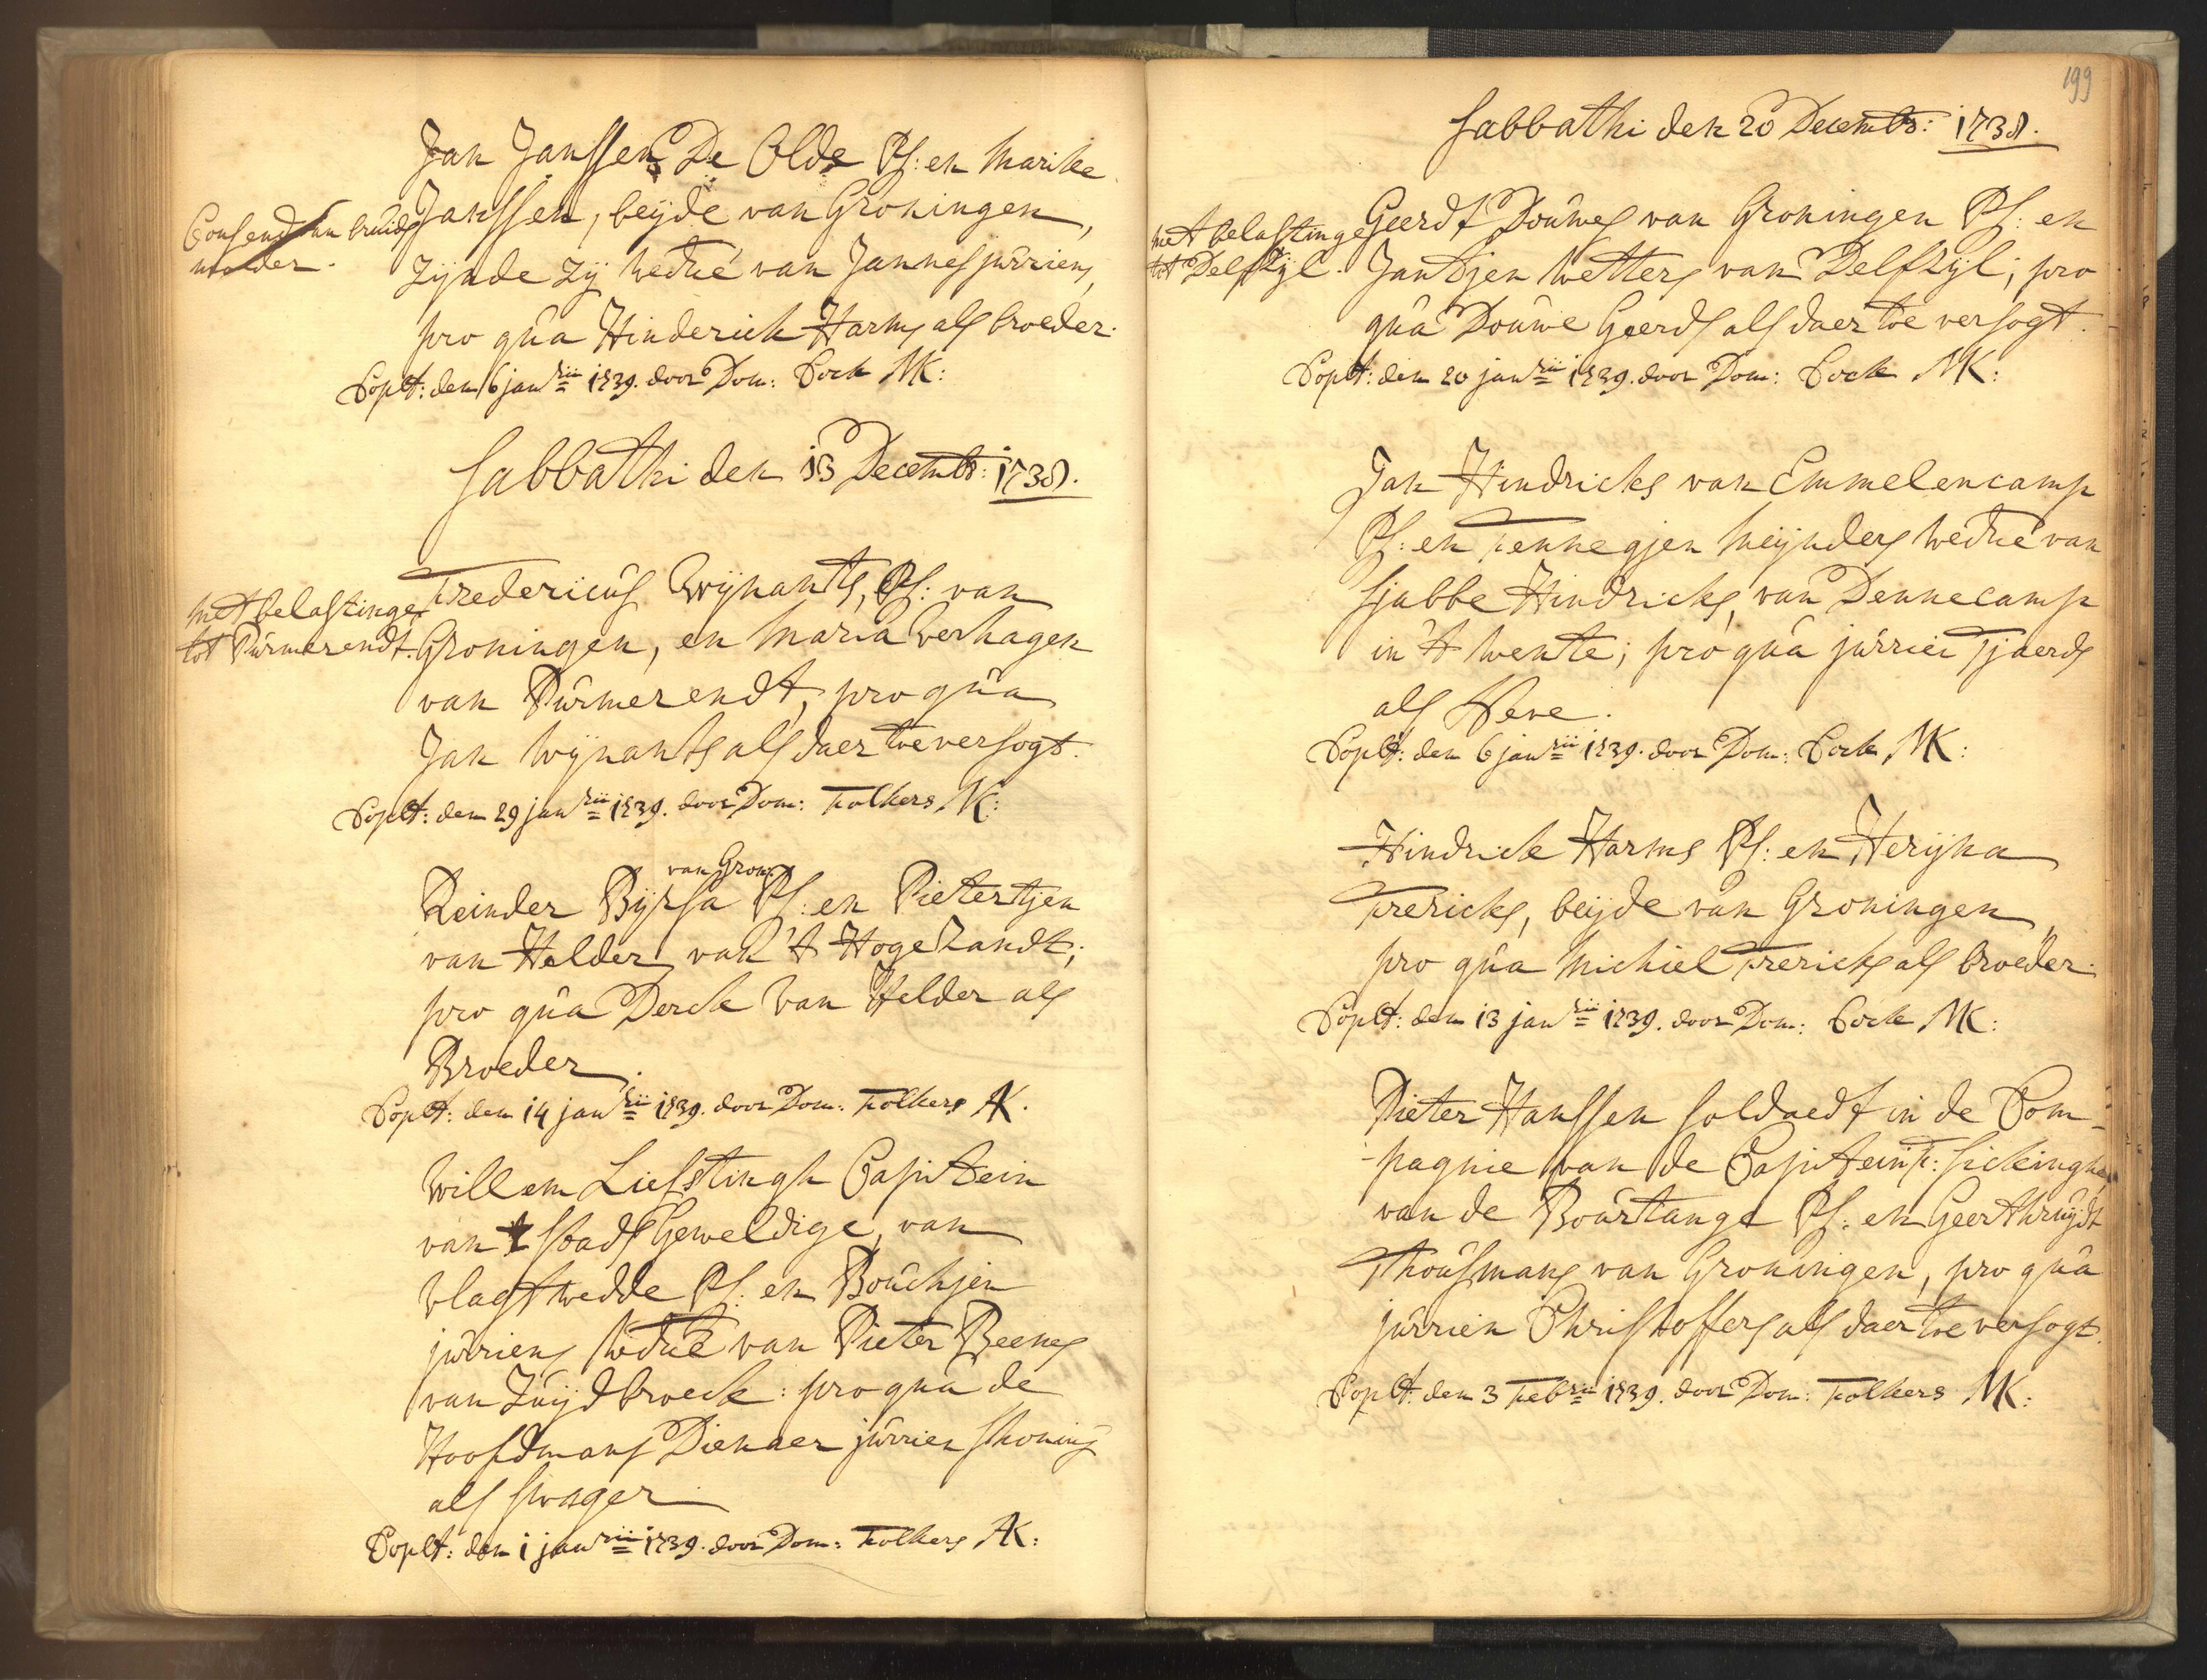 Jan Janssen De Olde Ps: en Marike
Consend van bruids
moeder.
Janssen, beÿde van Groningen,
zÿnde zÿ wedué van Jannes jurriens,
pro qua Hinderick Harms als broeder.
Coplt: den 6 janrii 1739. door Dom: Cock NK:
Sabbathi den 13 Decembr: 1738.
met belastinge
tot Purmerendt.
Fredericus Wÿnants, Ps: van
Groningen, en Maria Verhagen
van Purmerendt, pro qua
Jan Wÿnants als daer toe versogt.
Coplt: den 29 janrii 1739. door Dom: Folkers NK:
van Gron:
Reinder Bÿrsa Ps: en Pietertjen
van Helder van 't Hogezandt;
pro qua Derck van Helder als
Broeder.
Coplt: den 14 janrii 1739. door Dom: Folkers AK.
Willem Liefstingh Capitein
van t stads Geweldige, van
Vlagtwedde Ps: en Bouchjen
jurriens wedué van Pieter Beenes
van Zuÿdbroeck: pro qua de
Hoofdmans Dienaer jurrien Thoning
als swager
Coplt: den 1 janrii 1739. door Dom: Folkers AK:
199
Sabbathi den 20 Decembr: 1738.
met belastinge
tot Delfzÿl.
Geerdt Douwes van Groningen Ps: en
Jantjen Wetters van Delfzÿl; pro
qua Douwe Geerds als daer toe versogt.
Coplt: den 20 janrii 1739. door Dom: Cock NK:
Jan Hindricks van Emmelencamp
Ps: en Fennegjen Meÿnders wedué van
Sjabbe Hindricks, van Dennecamp
in 't Twente; pro qua jurrien Tjaerds
als Neve.
Coplt: den 6 janrii 1739. door Dom: Cock NK:
Hindrick Harms Ps: en Herÿna
Frericks, beÿde van Groningen,
pro qua Michiel Frericks als broeder.
Coplt: den 13 janrii 1739. door Dom: Cock NK:
Pieter Hanssen soldaedt in de Com-
-pagnie van de Capitein F: Sickinghe
van de Bourtange Ps: en Geerthruÿdt
Thousmans van Groningen, pro qua
jurrien Christoffers als daer toe versogt.
Coplt: den 3 Febrii 1739. door Dom: Folkers NK: